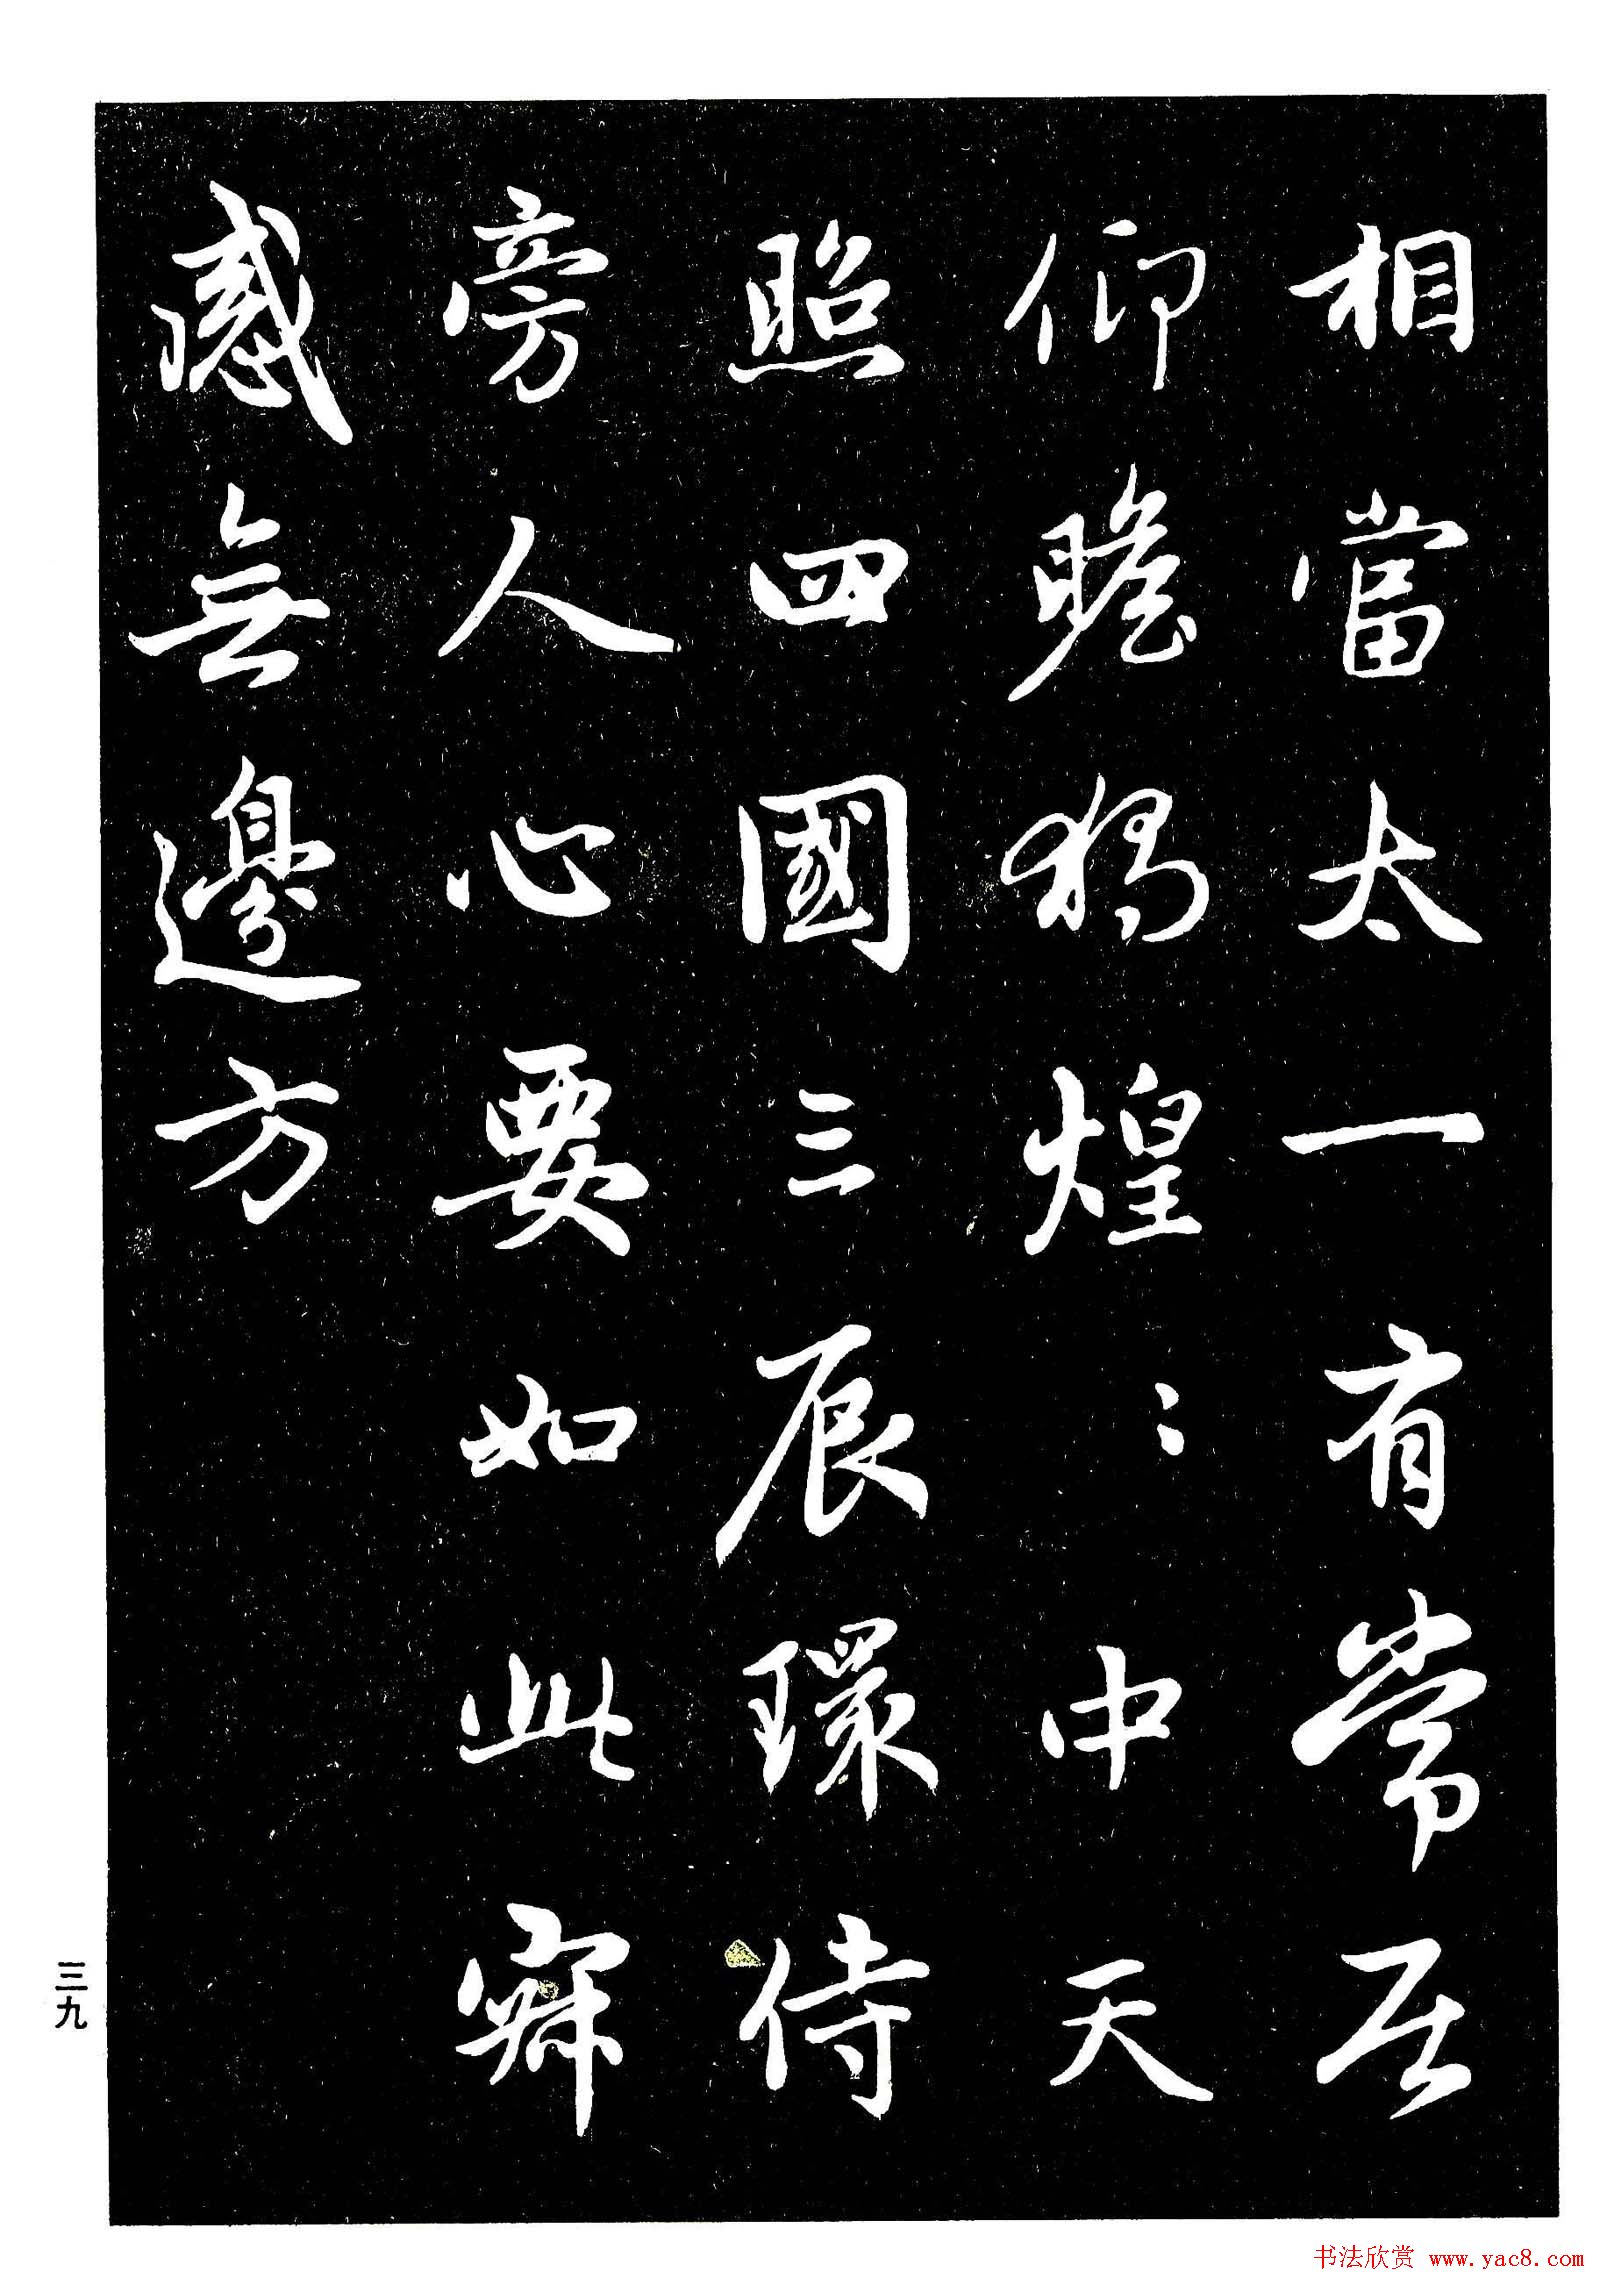 相當太一有常居
仰瞻獨煌〻中天
照四國三辰環侍
旁人心要如此寐
感無邊方
三九
书法欣赏 www.yac8.com